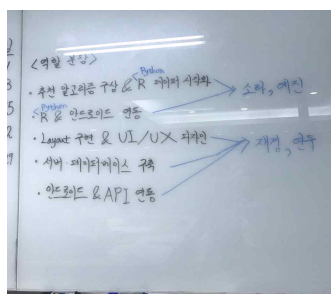 <역할 분담>
Python
· 추천 알고리즘 구상 & R 데이터 시각화
Python
· R & 안드로이드 연동
· Layout 구현 & UI/UX 디자인
· 서버·데이터베이스 구축
· 안드로이드 & API 연동
소라, 예진
재정, 연두